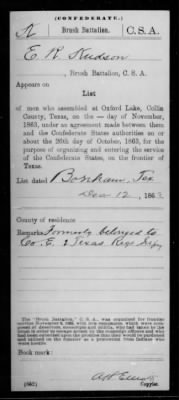 (CONFEDERATE.)
Brush Battalion. C. S. A.
E. R. Hudson
, Brush Battalion, C. S. A.
Appears on
List
of men who assembled at Oxford Lake, Collin
County, Texas, on the — day of November,
1863, under an agreement made between them
and the Confederate States authorities on or
about the 26th day of October, 1863, for the
purpose of organizing and entering the service
of the Confederate States, on the frontier of
Texas.
List dated Bonham, Tex
Dec 12, 186
County of residence
Remarks: Formerly belonged to
Co. E. 2 Texas Regt
The "Brush Battalion," C. S. A., was organized for frontier
service November
composed of deserters,
Book mark:
(662)
Copyist.